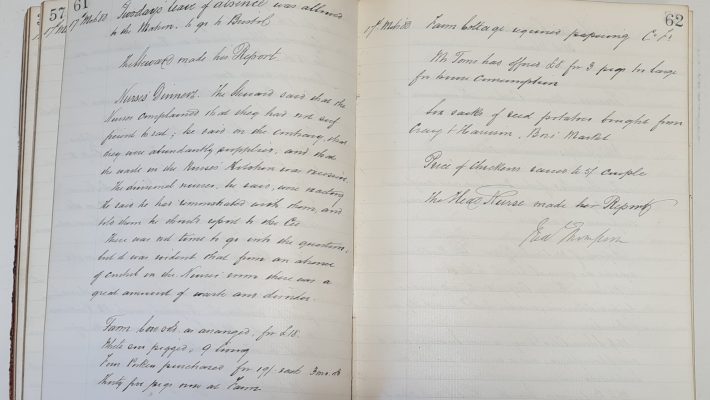 57
61
17th Mch 83
Tuesdays leave of absence was allowed
to the Matron, to go to Bristol
The Steward made his Report
Nurses' Dinners. The Steward said that the
Nurses complained that they had not suf
ficient to eat; he said on the contrary that
they were abundantly supplied, and that
the waste in the Nurses' Kitchen was excessive
The nurses, he said, were wasting
He said he had remonstrated with them, and
told them he should report to the Cee
There was not time to go into the question,
but it was evident that from an absence
of control in the Nurses room there was a
great amount of waste and disorder.
Farm Cow sold as arranged, for £18.
White sow pigged, 9 living
Four Porkers purchased for 19/- each 3 mo. old
Thirty five pigs now at Farm.
62
17th Mch 83
Farm Cottage requires papering
Mr Tome has offered £8 for 3 pigs too large
for House Consumption
Six sacks of seed potatoes bought from
Craig & Harrison, Boro' Market
Price of chickens raised to 5/ couple
The Head Nurse made her Report
Jed Thompson